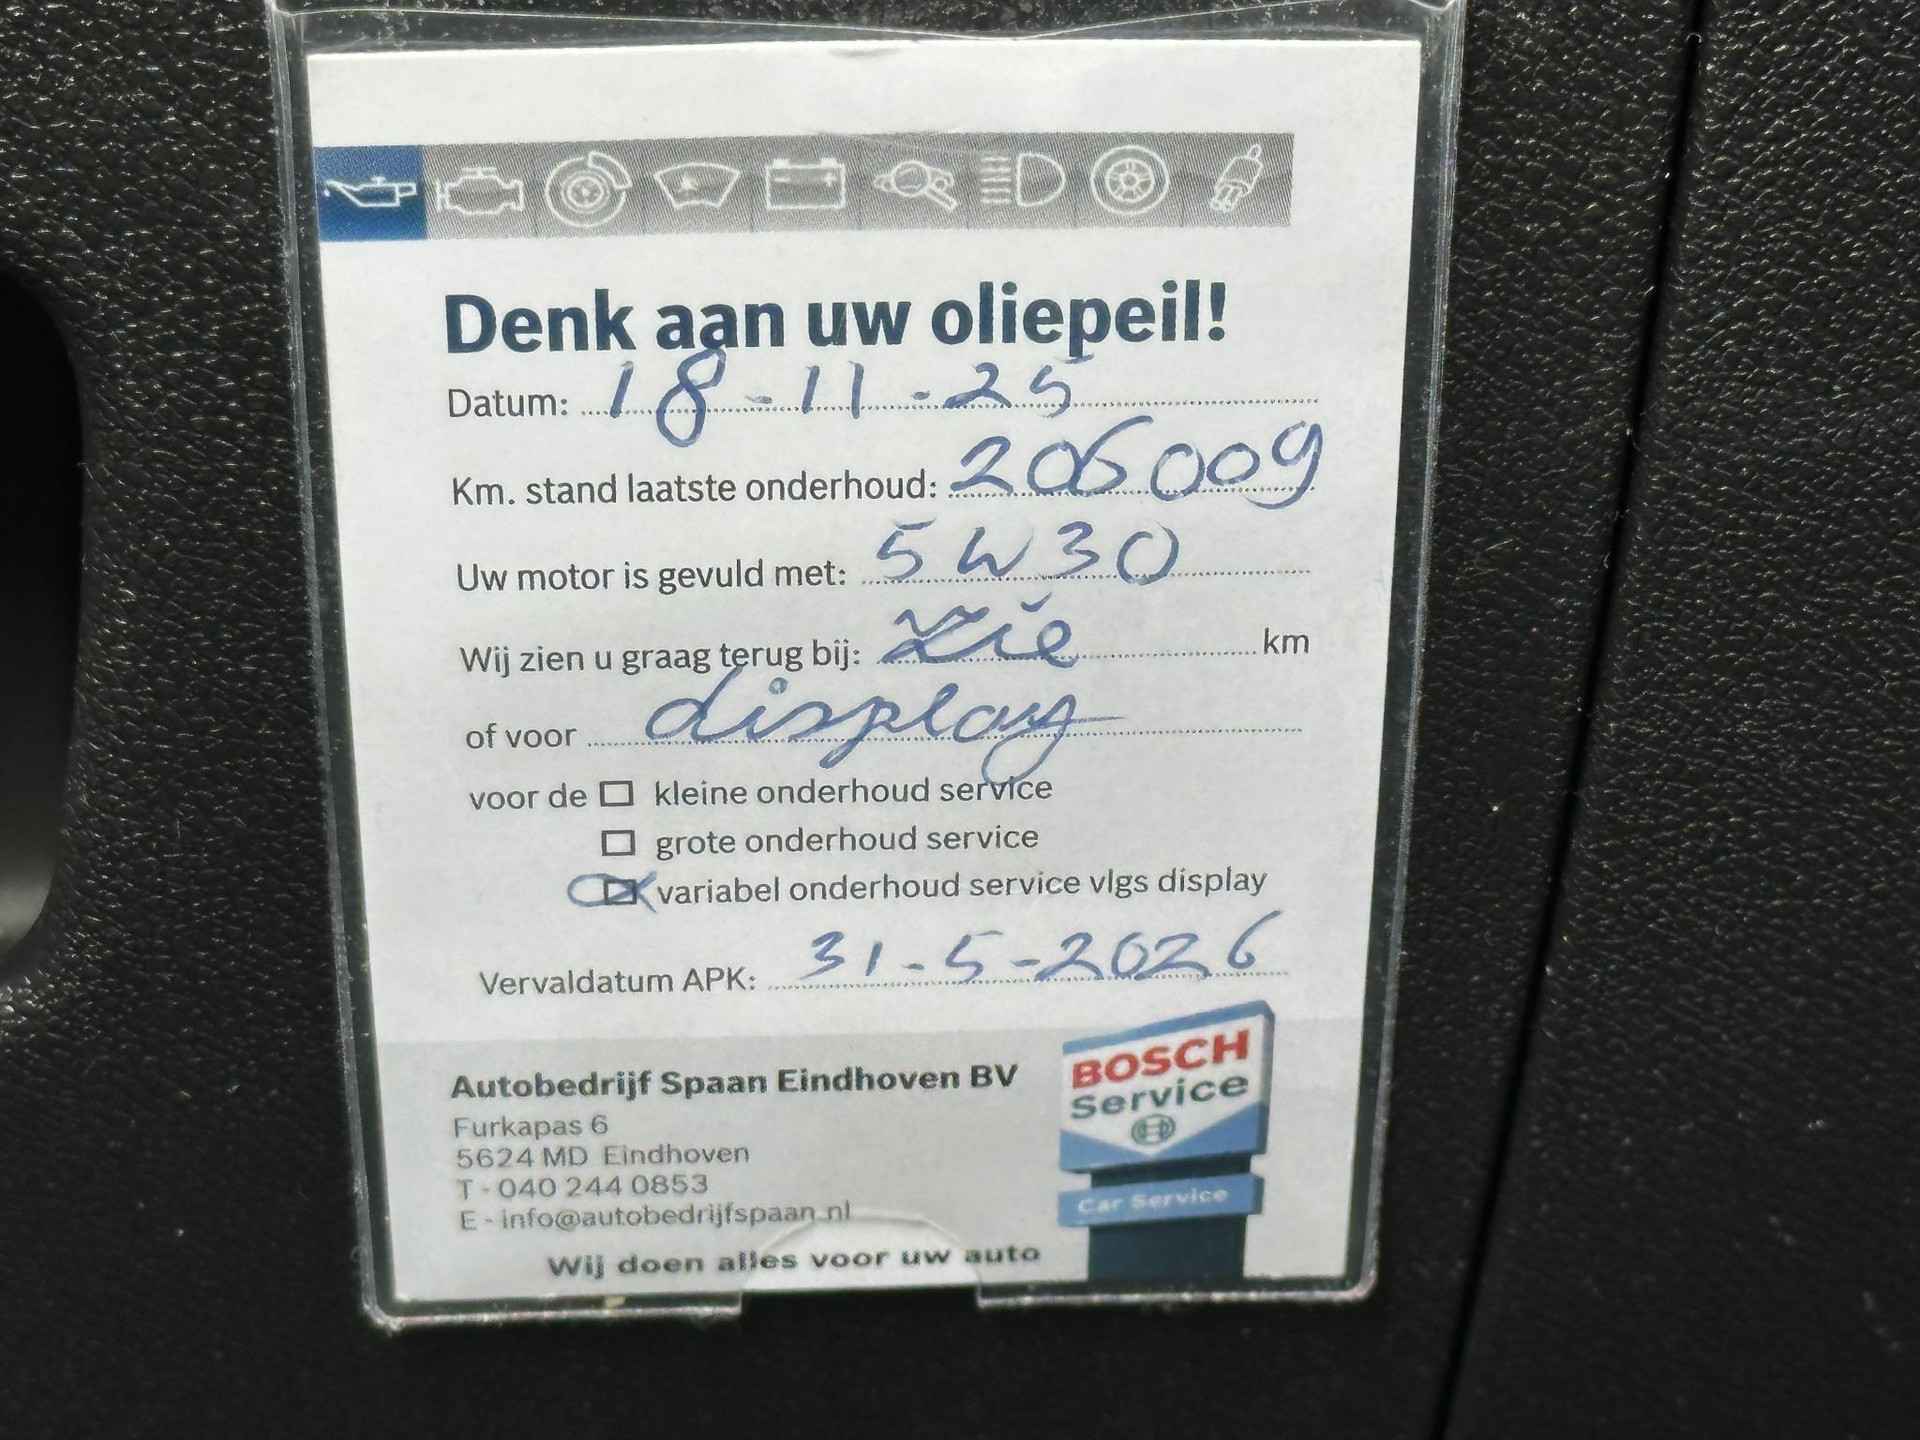 Denk aan uw oliepeil!
Datum: 18-11-25
Km. stand laatste onderhoud: 206009
Uw motor is gevuld met: 5W30
Wij zien u graag terug bij: Zie km
of voor display
voor de kleine onderhoud service
grote onderhoud service
variabel onderhoud service vlgs display
Vervaldatum APK: 31-5-2026
Autobedrijf Spaan Eindhoven BV
Furkapas 6
5624 MD Eindhoven
T - 040 244 0853
E - info@autobedrijfspaan.nl
Wij doen alles voor uw auto
BOSCH
Service
Car Service